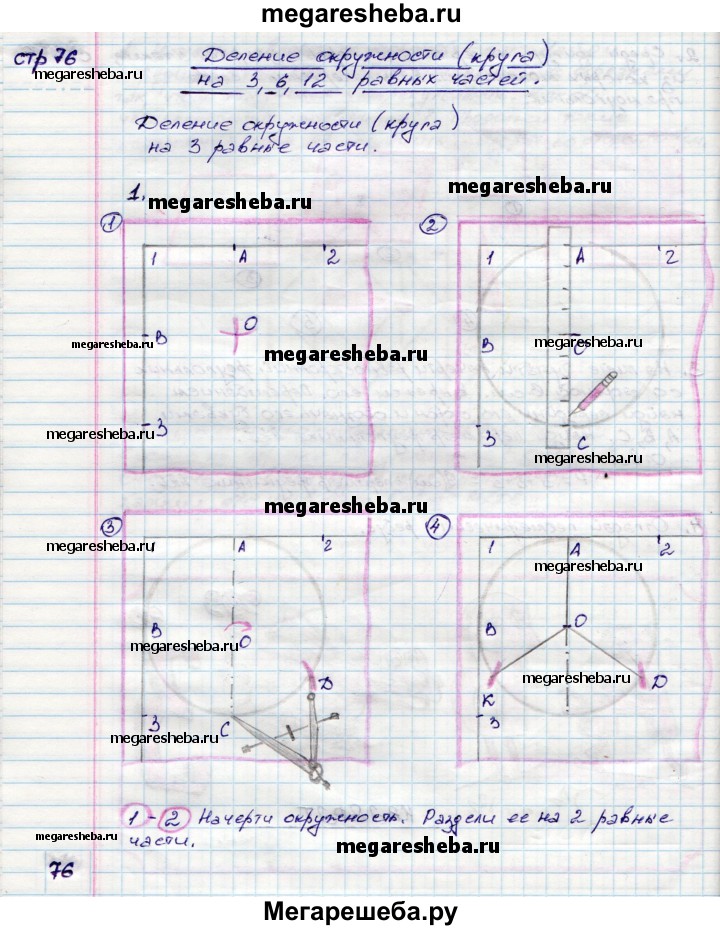 megaresheba.ru
стр 76
Деление окружности (круга)
megaresheba.ru
на 3, 6, 12 равных частей.
megaresheba.ru
Деление окружности (круга)
на 3 равные части.
1.
megaresheba.ru
megaresheba.ru
1
1 А 2
О
В
megaresheba.ru
megaresheba.ru
3
megaresheba.ru
2
1 А 2
megaresheba.ru
В О
megaresheba.ru
3 С
megaresheba.ru
megaresheba.ru
3
А 2
megaresheba.ru
В О
megaresheba.ru
D
3 С
megaresheba.ru
4
1 А 2
megaresheba.ru
В О
megaresheba.ru
К D
3
megaresheba.ru
1 - 2 Начерти окружность. Раздели ее на 2 равные
части.
megaresheba.ru
megaresheba.ru
76
Мегарешеба.ру